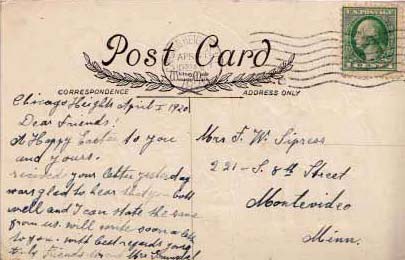 Post Card
CORRESPONDENCE
ADDRESS ONLY
Chicago Heights April 1 1920.
Dear Friends!
A Happy Easter to you
and yours.
received your letter yesterday
was glad to hear both
well and I can state the same
from us. will write soon
to you. with best regards
Friends Mrs
Mrs T. W. Sipress
221-S. 8th Street
Montevideo
Minn.